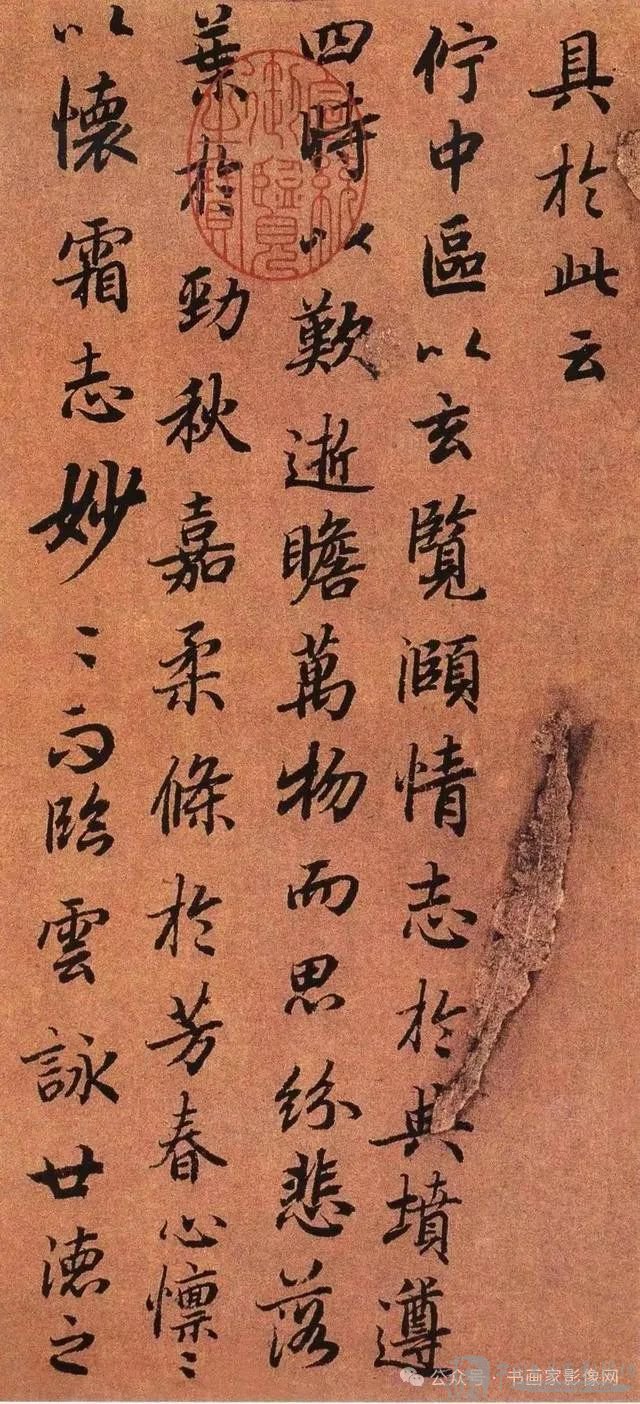 具於此云
佇中區以玄覽頤情志於典墳遵
四時以歎逝瞻萬物而思紛悲落
葉於勁秋嘉柔條於芳春心懍〻
以懷霜志妙〻而臨雲詠世德之
宣統御覽之寶
公众号 · 书画家影像网